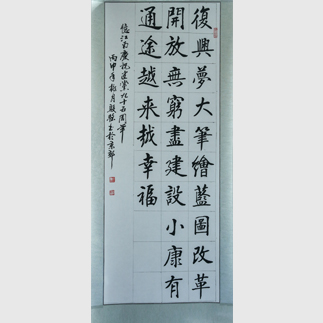 復興夢大筆繪藍圖改革
開放無窮盡建設小康有
通途越来越幸福
憶江南慶祝建黨九十五周年
丙申年